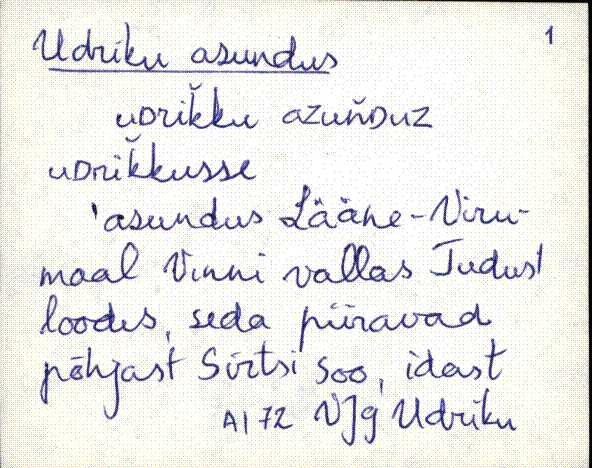 Udriku asundus 1
uᴅrik̆ku azun̆ᴅuz
uᴅrik̆kusse
'asundus Lääne-Viru-
maal Vinni vallas Tudust
loodes, seda piiravad
põhjast Sirtsi soo, idast
AI 72 VJg Udriku